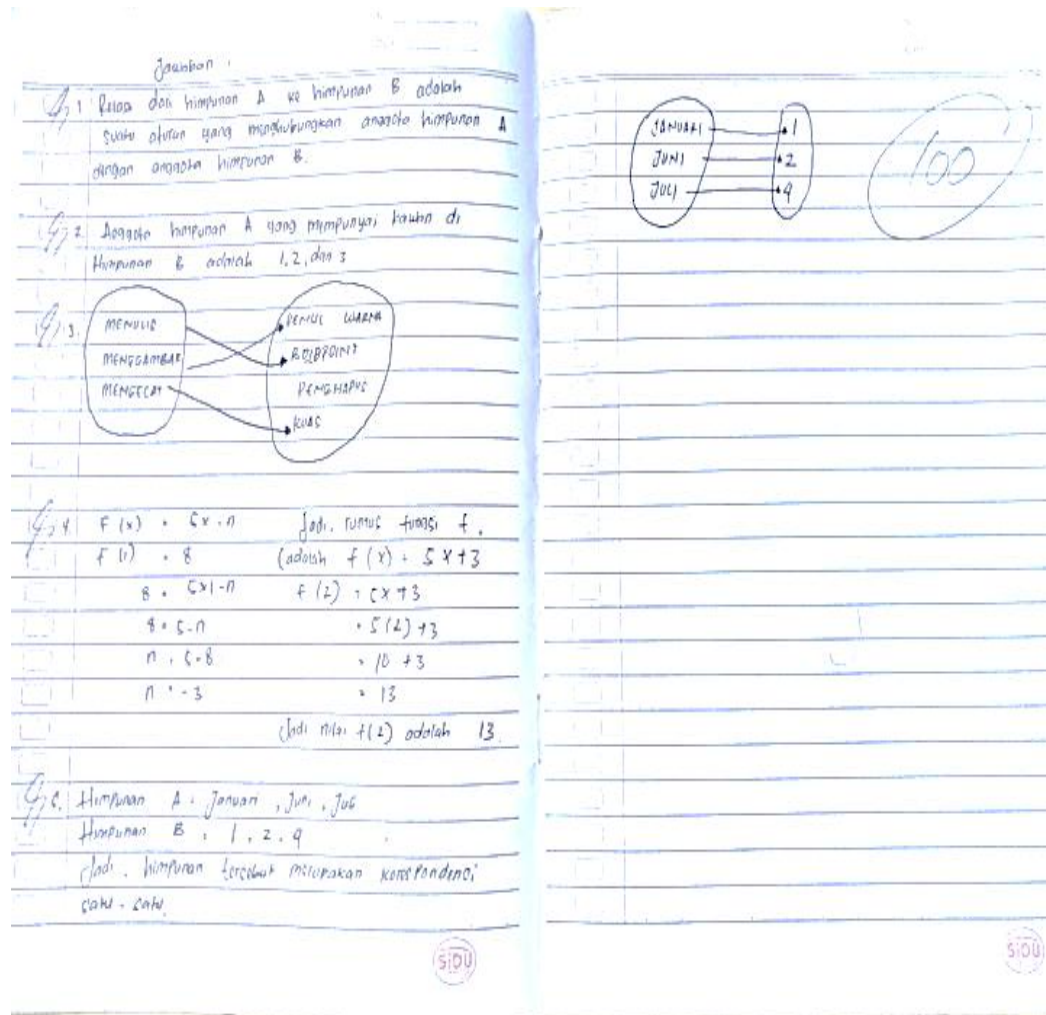 Jawaban :
1 Relasi dari himpunan A ke himpunan B adalah
suatu aturan yang menghubungkan anggota himpunan A
dengan anggota himpunan B.
2 Anggota himpunan A yang mempunyai kawan di
Himpunan B adalah 1, 2, dan 3
3.
MENULIS
MENGGAMBAR
MENGECAT
PENSIL WARNA
BOLBPOINT
PENGHAPUS
KUAS
4 F (x) = 5x - n
f (1) = 8
8 = 5x1 - n
8 = 5 - n
n = 5 - 8
n = -3
Jadi, rumus fungsi f.
adalah f (x) = 5x + 3
f (2) = 5x + 3
= 5 (2) + 3
= 10 + 3
= 13
Jadi nilai f(2) adalah 13.
5. Himpunan A = Januari, Juni, Juli
Himpunan B = 1, 2, 9
Jadi, himpunan tersebut merupakan korespondensi
satu - satu.
SIDU
JANUARI
JUNI
JULI
1
2
9
100
SIDU